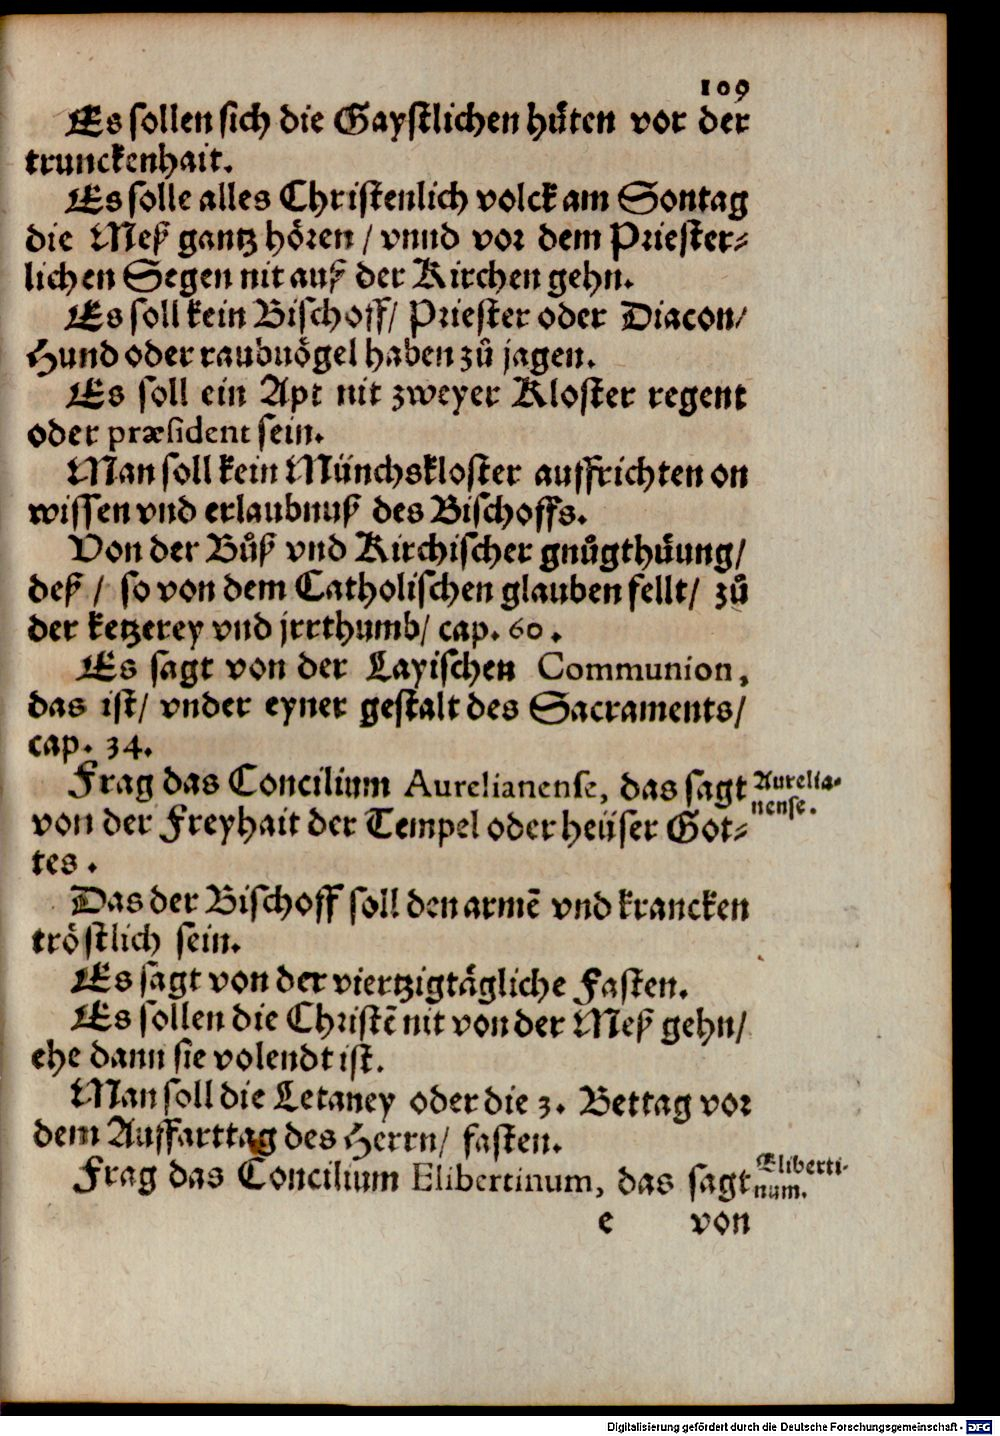 109
Es sollen sich die Gaystlichen hůten vor der
trunckenhait.
Es solle alles Christenlich volck am Sontag
die Meß gantz hören / vnnd vor dem Priester⸗
lichen Segen nit auß der Kirchen gehn.
Es soll kein Bischoff/ Priester oder Diacon/
Hund oder raubuögel haben zů jagen.
Es soll ein Apt nit zweyer Kloster regent
oder præsident sein.
Man soll kein Münchskloster auffrichten on
wissen vnd erlaubnuß des Bischoffs.
Von der Bůß vnd Kirchischer gnůgthůung/
deß / so von dem Catholischen glauben fellt/ zů
der ketzerey vnd jrrthumb/ cap. 60.
Es sagt von der Layischen Communion,
das ist/ vnder eyner gestalt des Sacraments/
cap. 34.
Frag das Concilium Aurelianense, das sagt
Aurelia-
nense.
von der Freyhait der Tempel oder heüser Got⸗
tes.
Das der Bischoff soll den armē vnd krancken
tröstlich sein.
Es sagt von der viertzigtågliche Fasten.
Es sollen die Christē nit von der Meß gehn/
ehe dann sie volendt ist.
Man soll die Letaney oder die 3. Bettag vor
dem Auffarttag des Herrn/ fasten.
Frag das Concilium Elibertinum, das sagt
Eliberti-
num.
e von
Digitalisierung gefördert durch die Deutsche Forschungsgemeinschaft - DFG